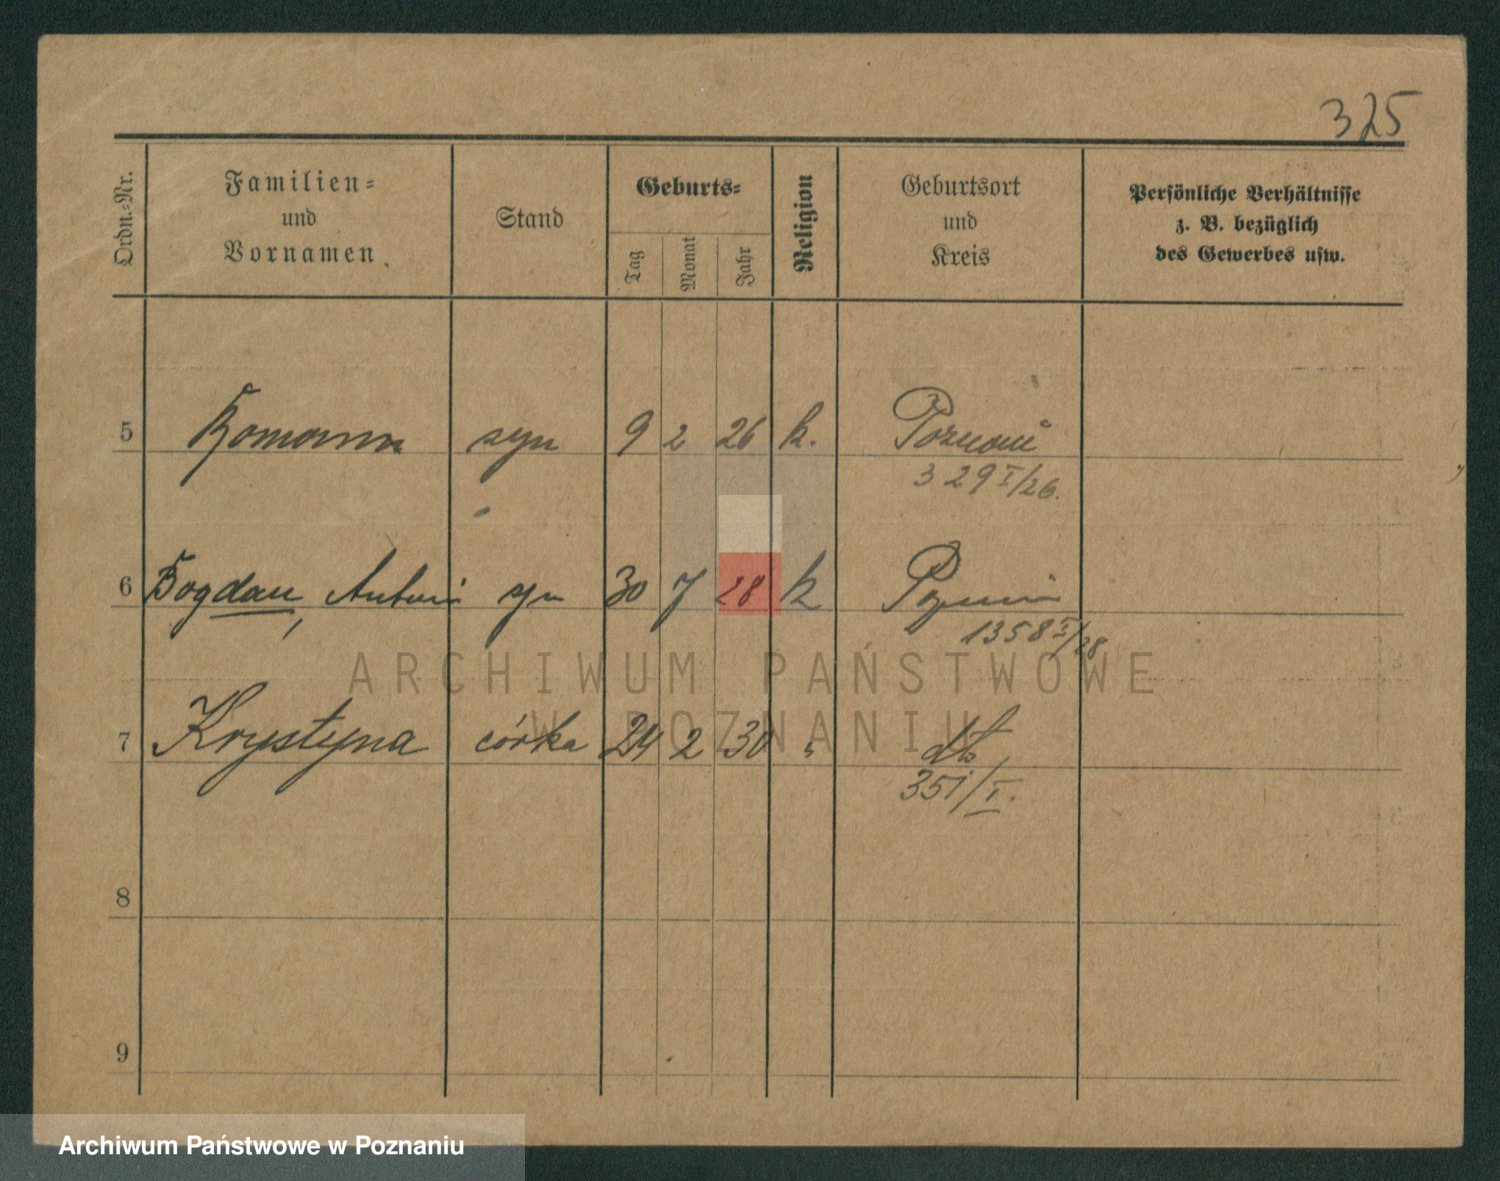 325
Ordn.-Nr.
Familien-
und
Vornamen
Stand
Geburts-
Tag
Monat
Jahr
Religion
Geburtsort
und
Kreis
Persönliche Verhältnisse
z. B. bezüglich
des Gewerbes usw.
5 Roman syn 9 2 26 k. Poznań
329 I/26.
6 Bogdan, Antoni syn 30 7 28 k Poznań
1358 I/28
ARCHIWUM PAŃSTWOWE
W POZNANIU
7 Krystyna córka 24 2 30 " dto
351/I.
8
9
Archiwum Państwowe w Poznaniu